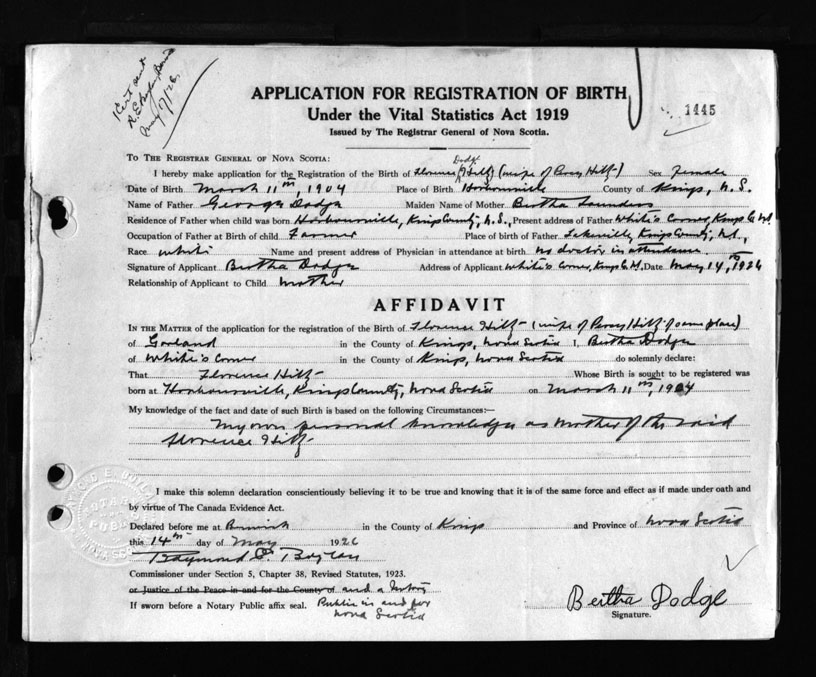 Cert sent
May 17/26
APPLICATION FOR REGISTRATION OF BIRTH
1445
Under the Vital Statistics Act 1919
Issued by The Registrar General of Nova Scotia.
TO THE REGISTRAR GENERAL OF NOVA SCOTIA:
Dodge
I hereby make application for the Registration of the Birth of Florence (Hiltz) (wife of Percy Hiltz) Sex Female
Date of Birth March 11th, 1904 Place of Birth Harbourville County of Kings, N.S.
Name of Father George Dodge Maiden Name of Mother Bertha Saunders
Residence of Father when child was born Harbourville, Kings County, N.S., Present address of Father White's Corner, Kings Co N.S.
Occupation of Father at Birth of child Farmer Place of birth of Father Lakeville, Kings County, N.S.,
Race white Name and present address of Physician in attendance at birth no doctor in attendance
Signature of Applicant Bertha Dodge Address of Applicant White's Corner, Kings Co. N.S. Date May 14th, 1926
Relationship of Applicant to Child mother
AFFIDAVIT
IN THE MATTER of the application for the registration of the Birth of Florence Hiltz (wife of Percy Hiltz of same place)
of Garland in the County of Kings, Nova Scotia I, Bertha Dodge
of White's Corner in the County of Kings, Nova Scotia do solemnly declare:
That Florence Hiltz Whose Birth is sought to be registered was
born at Harbourville, Kings County, Nova Scotia on March 11th, 1904
My knowledge of the fact and date of such Birth is based on the following Circumstances:—
My own personal knowledge as mother of the said
Florence Hiltz
I make this solemn declaration conscientiously believing it to be true and knowing that it is of the same force and effect as if made under oath and
by virtue of The Canada Evidence Act.
Declared before me at Berwick in the County of Kings and Province of Nova Scotia
this 14th day of May 1926
Raymond E.
Commissioner under Section 5, Chapter 38, Revised Statutes, 1923.
or Justice of the Peace in and for the County of and a Notary
If sworn before a Notary Public affix seal. Public in and for
Nova Scotia
Bertha Dodge
Signature.